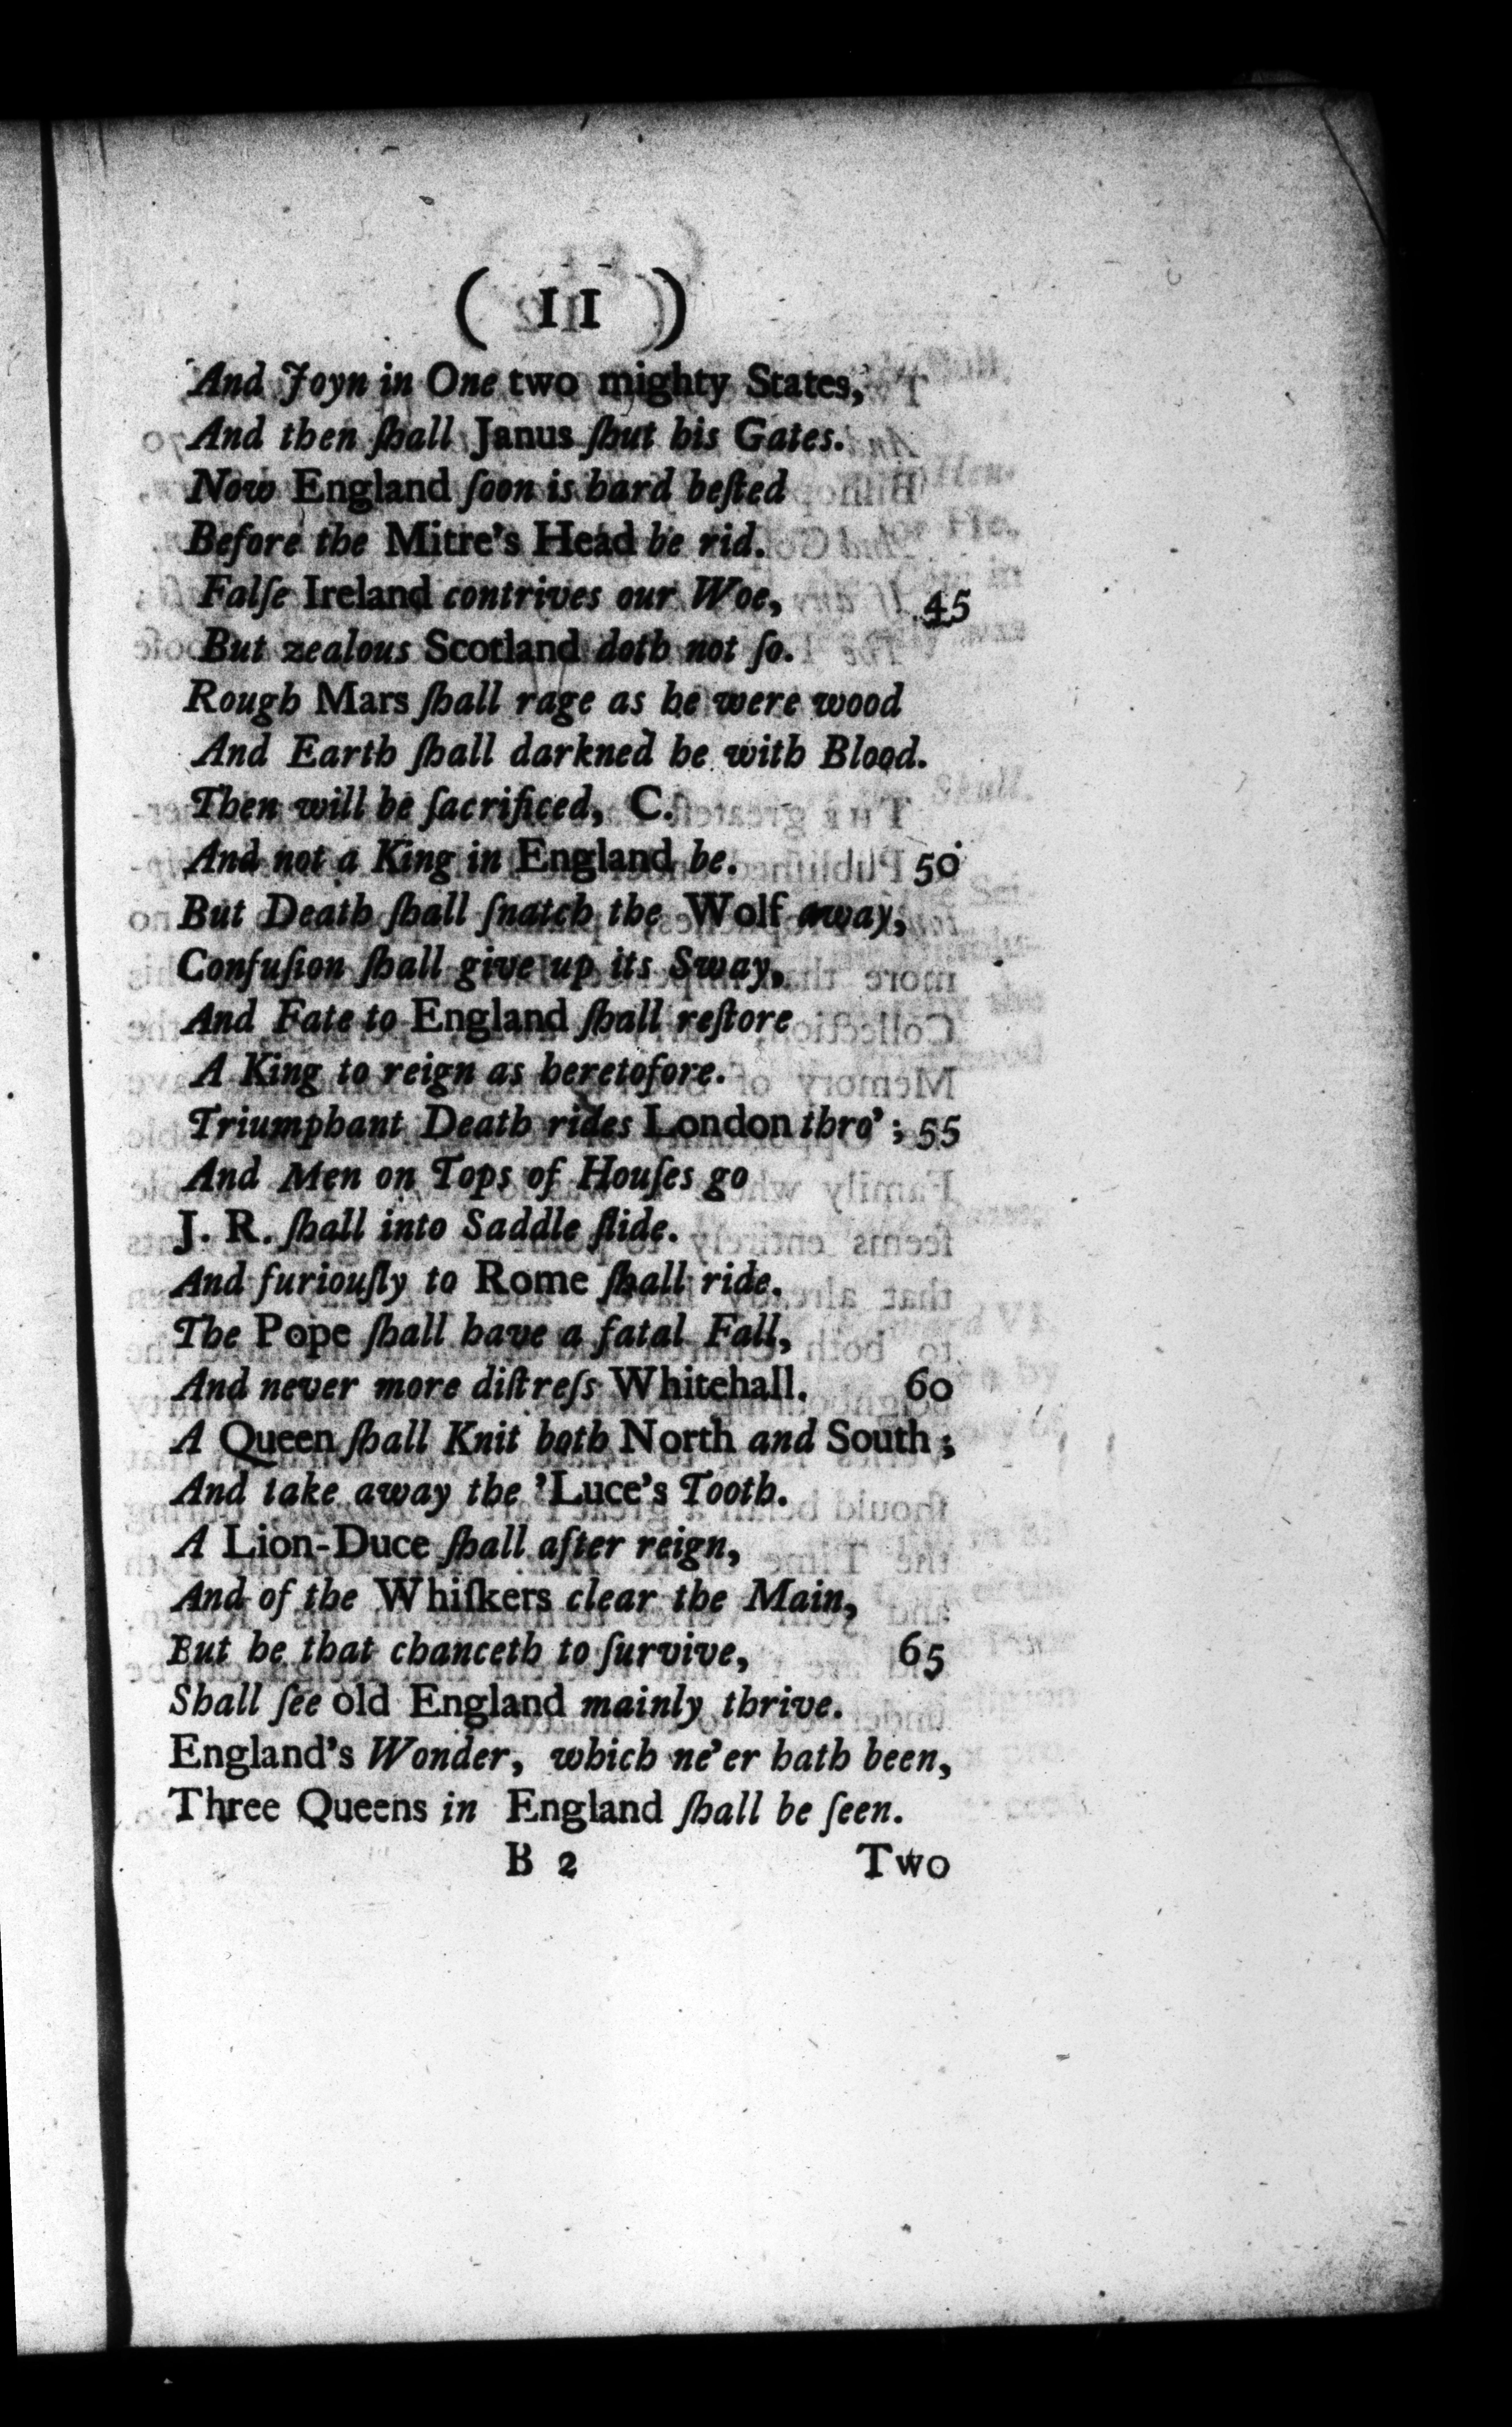 ( 11 )
And Joyn in One two mighty States,
And then ſhall Janus ſhut his Gates.
Now England ſoon is hard beſted
Before the Mitre's Head be rid.
Falſe Ireland contrives our Woe, 45
But zealous Scotland doth not ſo.
Rough Mars ſhall rage as he were wood
And Earth ſhall darkned be with Blood.
Then will be ſacrificed, C.
And not a King in England be. 50
But Death ſhall ſnatch the Wolf away,
Confuſion ſhall give up its Sway,
And Fate to England ſhall reſtore
A King to reign as heretofore.
Triumphant Death rides London thro'; 55
And Men on Tops of Houſes go
J. R. ſhall into Saddle ſlide.
And furiouſly to Rome ſhall ride.
The Pope ſhall have a fatal Fall,
And never more diſtreſs Whitehall. 60
A Queen ſhall Knit both North and South;
And take away the 'Luce's Tooth.
A Lion-Duce ſhall after reign,
And of the Whiſkers clear the Main,
But he that chanceth to ſurvive, 65
Shall ſee old England mainly thrive.
England's Wonder, which ne'er hath been,
Three Queens in England ſhall be ſeen.
B 2 Two